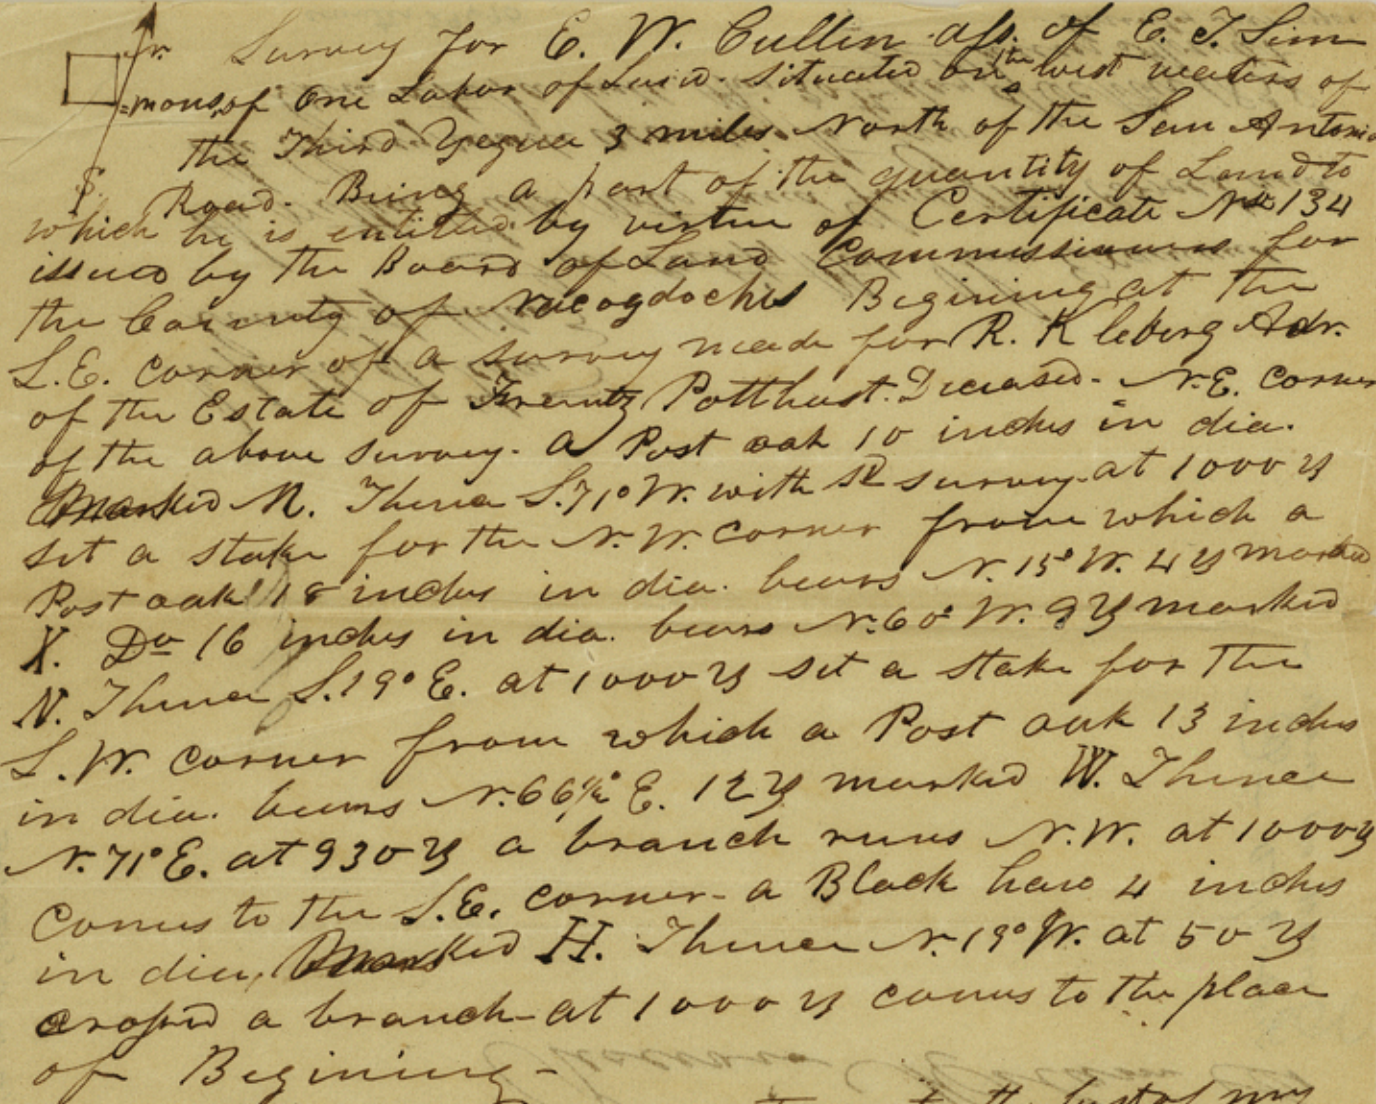 N. Survey for E. W. Cullin ass. of E. T. Sim
=mons, of One Labor of Land. Situated on the west waters of
the Third Yegua 3 miles North of the San Antonio
S. Road. Being a part of the quantity of Land to
which he is entitled by virtue of Certificate No 134
issued by the Board of Land Commissioners for
the County of Nacogdoches Begining at the
S.E. corner of a survey made for R. Kleberg Adr.
of the Estate of Frentz Potthast. Deceased. N.E. corner
of the above survey. a Post oak 10 inches in dia.
Marked M. Thence S. 71° W. with sd survey at 1000 vs
set a stake for the N.W. corner from which a
Post oak 18 inches in dia. bears N. 15° W. 4 vs marked
X. Do 16 inches in dia. bears N. 60° W. 9 vs marked
N. Thence S. 19° E. at 1000 vs set a stake for the
S.W. corner from which a Post oak 13 inches
in dia. bears N. 66½° E. 12 vs marked W. Thence
N. 71° E. at 930 vs a branch runs N.W. at 1000 vs
comes to the S.E. corner - a Black haw 4 inches
in dia. Marked H. Thence N. 19° W. at 50 vs
crossed a branch - at 1000 vs comes to the place
of Begining -
the best of my